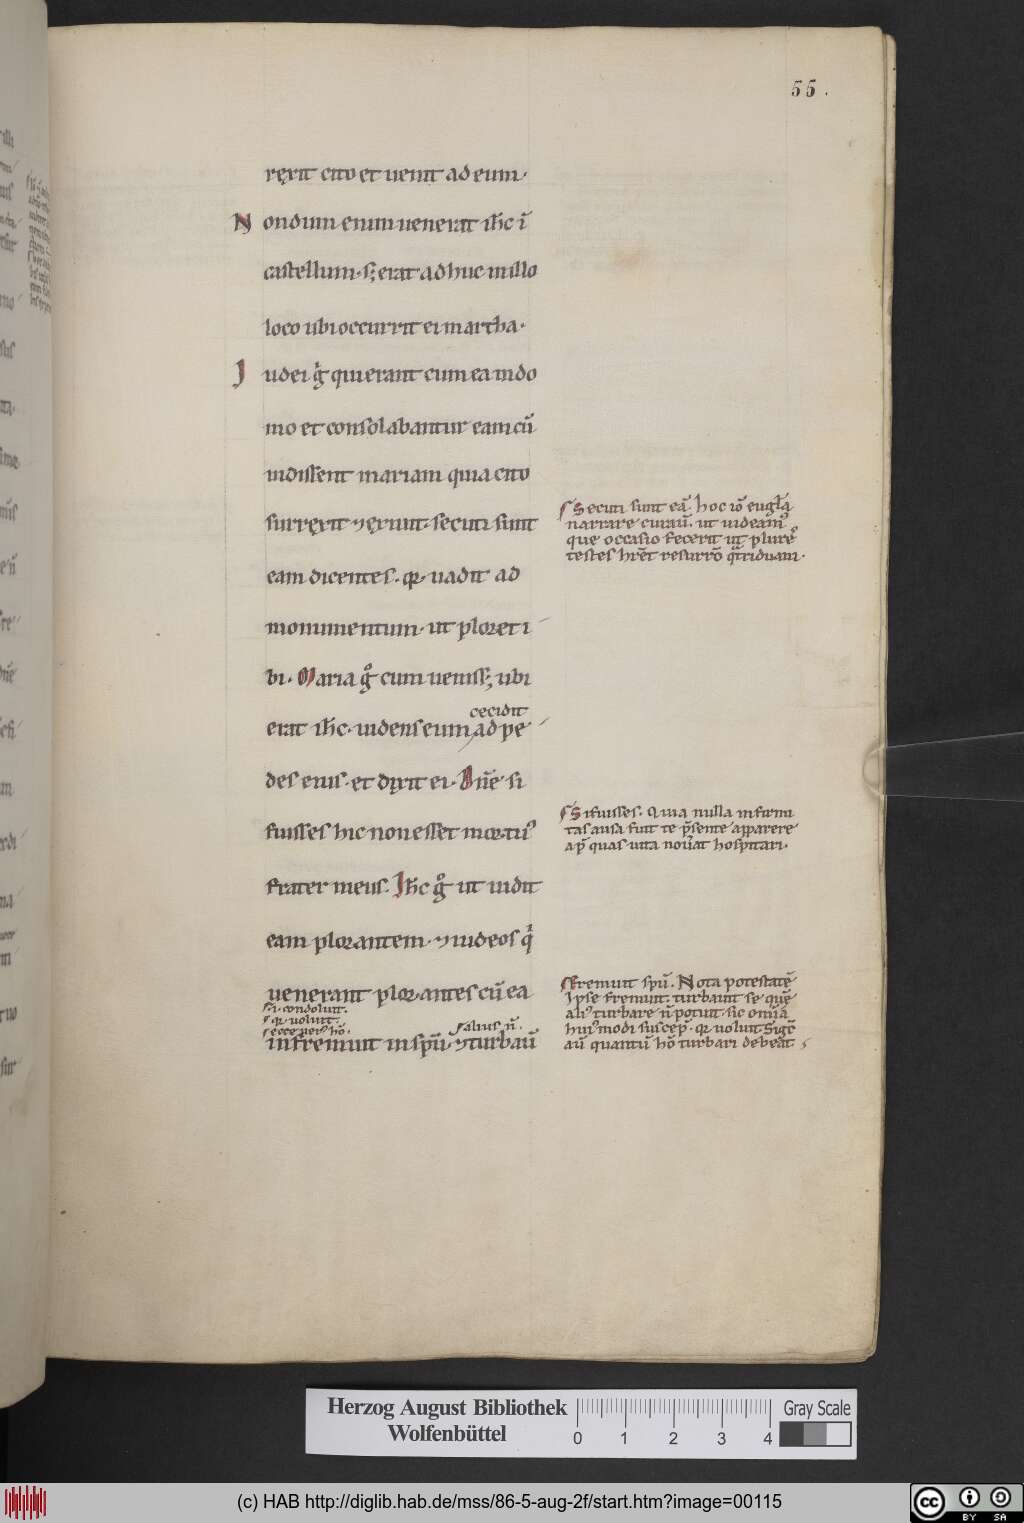 55.
ręxit cito et uenit ad eum·
Nondum enim uenerat ih̅c i̅
castellum· s; erat adhuc in illo
loco ubi occurrit ei martha·
Iudei g̊ qui erant cum ea in do
mo et consolabantur eam cu̅
uidissent mariam quia cito
surręxit ⁊ exiuit· secuti sunt
eam dicentes· qꝛ uadit ad
monumentum· ut ploret i
bi· Maria g̊ cum uenisset ubi
erat ih̅c· uidens eum cecidit ad pe
des eius· et dixit ei· Dn̅e si
fuisses hic non esset mortuꝰ
frater meus· Ih̅c g̊ ut uidit
eam plorantem· ⁊ iudeos q̇
uenerant plorantes cu̅ ea
.i. condoluit·
qꝛ uoluit·
alius n̅·
infremuit in spu̅· ⁊ turbau̅
Secuti sunt ea̅· hoc io̅ eugl̅a
narrare curau̅· ut uideamꝰ
que occasio fecerit ut plures
testes hr̅et resurro̅ q̅triduani·
Si fuisses· Quia nulla infirmi
tas ausa fuit te p̅sente apparere
ap̅ quas uita nou̅at hospitari·
Fremuit spu̅· Nota potestate̅
Ipse fremuit· turbauit se que̅
aliꝰ turbare n̅ potuit· sic omia
huiꝰmodi suscep̅· qꝛ uoluit· Sige̅
au̅ quantu̅ ho̅ turbari debeat
Herzog August Bibliothek
Wolfenbüttel
0 1 2 3 4
Gray Scale
(c) HAB http://diglib.hab.de/mss/86-5-aug-2f/start.htm?image=00115
cc BY SA